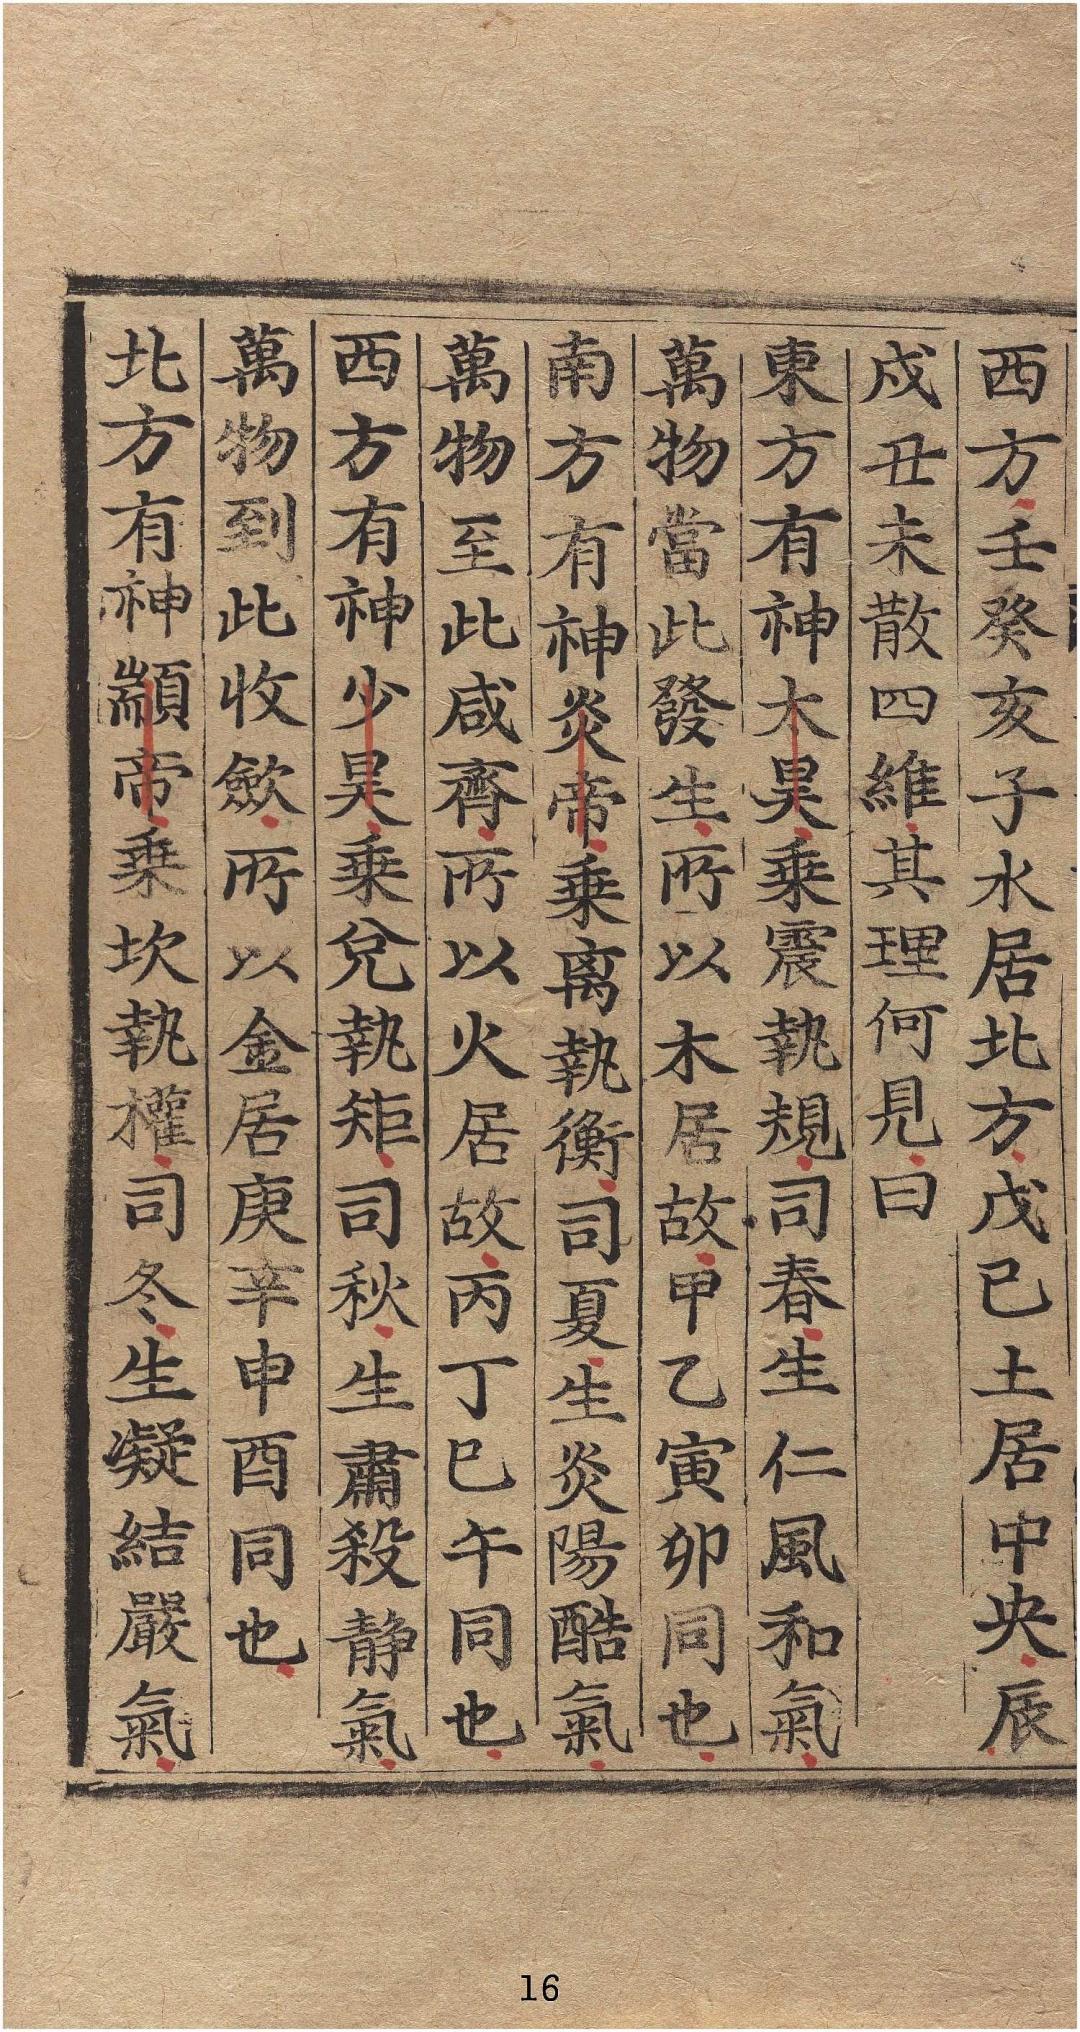 西方壬癸亥子水居北方戊已土居中央辰
戍丑未散四維其理何見曰
東方有神太昊乗震執規司春生仁風和氣
萬物當此發生所以木居故甲乙寅卯同也
南方有神炎帝乗离執衡司夏生炎陽酷氣
萬物至此咸齊所以火居故丙丁巳午同也
西方有神少昊乗兌執矩司秋生肅殺静氣
萬物到此收歛所以金居庚辛申酉同也
北方有神顓帝乗坎執權司冬生凝結嚴氣
16